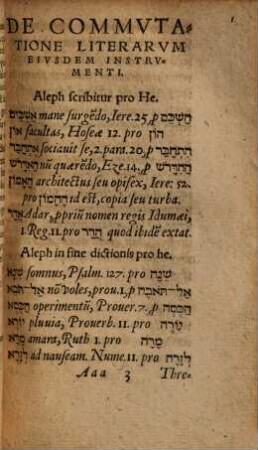 DE COMMVTA-
TIONE LITERARVM
EIVSDEM INSTRV-
MENTI.
Aleph scribitur pro He.
אשכים mane surgẽdo, Iere. 25, p השכם
און facultas, Hoseæ 12. pro הון
אתחבר sociauit se, 2. para. 20. p התחבר
האדרש nũ quærẽdo, Eze. 14. p ההדרש
האמון architectus seu opifex, Iere: 52.
pro ההמון id est, copia seu turba.
אדר Adar, ppriũ nomen regis Idumæi,
1. Reg. 11. pro הדר quod ibidẽ extat.
Aleph in fine dictionis pro he.
שנא somnus, Psalm. 127. pro שנה
אל־תבא nõ voles, prou. 1. p אל־תאבה
הכסא operimentũ, Prouer. 7. p הכסה
יורא pluuia, Prouerb. 11. pro יורה
מרא amara, Ruth 1. pro מרה
לזרא ad nauseam. Nume. 11. pro לזרה
Aaa 3 Thre-